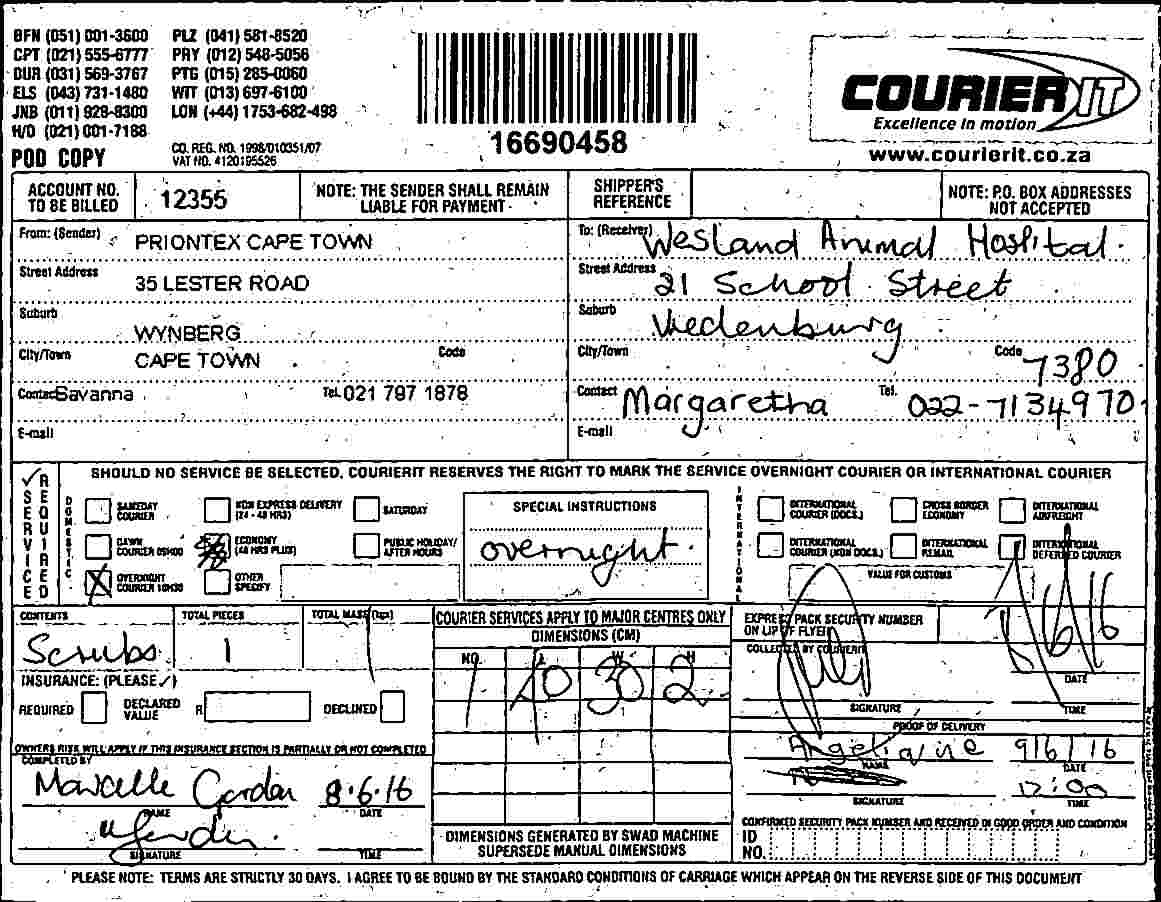 BFN (051) 001-3600 PLZ (041) 581-8520
CPT (021) 555-6777 PRY (012) 548-5056
DUR (031) 569-3767 PTG (015) 285-0060
ELS (043) 731-1480 WIT (013) 697-6100
JNB (011) 929-8300 LON (+44) 1753-682-498
H/O (021) 001-7188
POD COPY
CO. REG. NO. 1998/010351/07
VAT NO. 4120195526
16690458
COURIER IT
Excellence in motion
www.courierit.co.za
ACCOUNT NO. TO BE BILLED 12355
NOTE: THE SENDER SHALL REMAIN LIABLE FOR PAYMENT
SHIPPER'S REFERENCE
NOTE: P.O. BOX ADDRESSES NOT ACCEPTED
From: (Sender) PRIONTEX CAPE TOWN
Street Address 35 LESTER ROAD
Suburb WYNBERG
City/Town CAPE TOWN Code
Contact Savanna Tel. 021 797 1878
E-mail
To: (Receiver) Wesland Animal Hospital.
Street Address 21 School Street
Suburb Vredenburg
City/Town Code 7380
Contact Margaretha Tel. 022-7134970
E-mail
SERVICE REQUIRED
SHOULD NO SERVICE BE SELECTED, COURIERIT RESERVES THE RIGHT TO MARK THE SERVICE OVERNIGHT COURIER OR INTERNATIONAL COURIER
DOMESTIC
SAMEDAY COURIER
NON EXPRESS DELIVERY (24 - 48 HRS)
SATURDAY
DAWN COURIER 09H00
ECONOMY (48 HRS PLUS)
PUBLIC HOLIDAY/ AFTER HOURS
OVERNIGHT COURIER 10H30
OTHER SPECIFY
SPECIAL INSTRUCTIONS
overnight.
INTERNATIONAL
INTERNATIONAL COURIER (DOCS.)
CROSS BORDER ECONOMY
INTERNATIONAL AIRFREIGHT
INTERNATIONAL COURIER (NON DOCS.)
INTERNATIONAL REMAIL
INTERNATIONAL DEFERRED COURIER
VALUE FOR CUSTOMS
CONTENTS Scrubs
TOTAL PIECES 1
TOTAL MASS (kgs) 1
INSURANCE: (PLEASE ✓)
REQUIRED DECLARED VALUE R DECLINED
OWNERS RISK WILL APPLY IF THIS INSURANCE SECTION IS PARTIALLY OR NOT COMPLETED
COMPLETED BY
Marcelle Gordon 8.6.16
NAME DATE
SIGNATURE TIME
COURIER SERVICES APPLY TO MAJOR CENTRES ONLY
DIMENSIONS (CM)
NO. L W H
1 40 30 2
DIMENSIONS GENERATED BY SWAD MACHINE SUPERSEDE MANUAL DIMENSIONS
EXPRESS PACK SECURITY NUMBER ON LIP OF FLYER
COLLECTED BY COURIERIT
8/6/16
DATE
SIGNATURE TIME
PROOF OF DELIVERY
Angeliqine 9/6/16
NAME DATE
12:00
SIGNATURE TIME
CONFIRMED SECURITY PACK NUMBER AND RECEIVED IN GOOD ORDER AND CONDITION
ID NO.
PLEASE NOTE: TERMS ARE STRICTLY 30 DAYS. I AGREE TO BE BOUND BY THE STANDARD CONDITIONS OF CARRIAGE WHICH APPEAR ON THE REVERSE SIDE OF THIS DOCUMENT